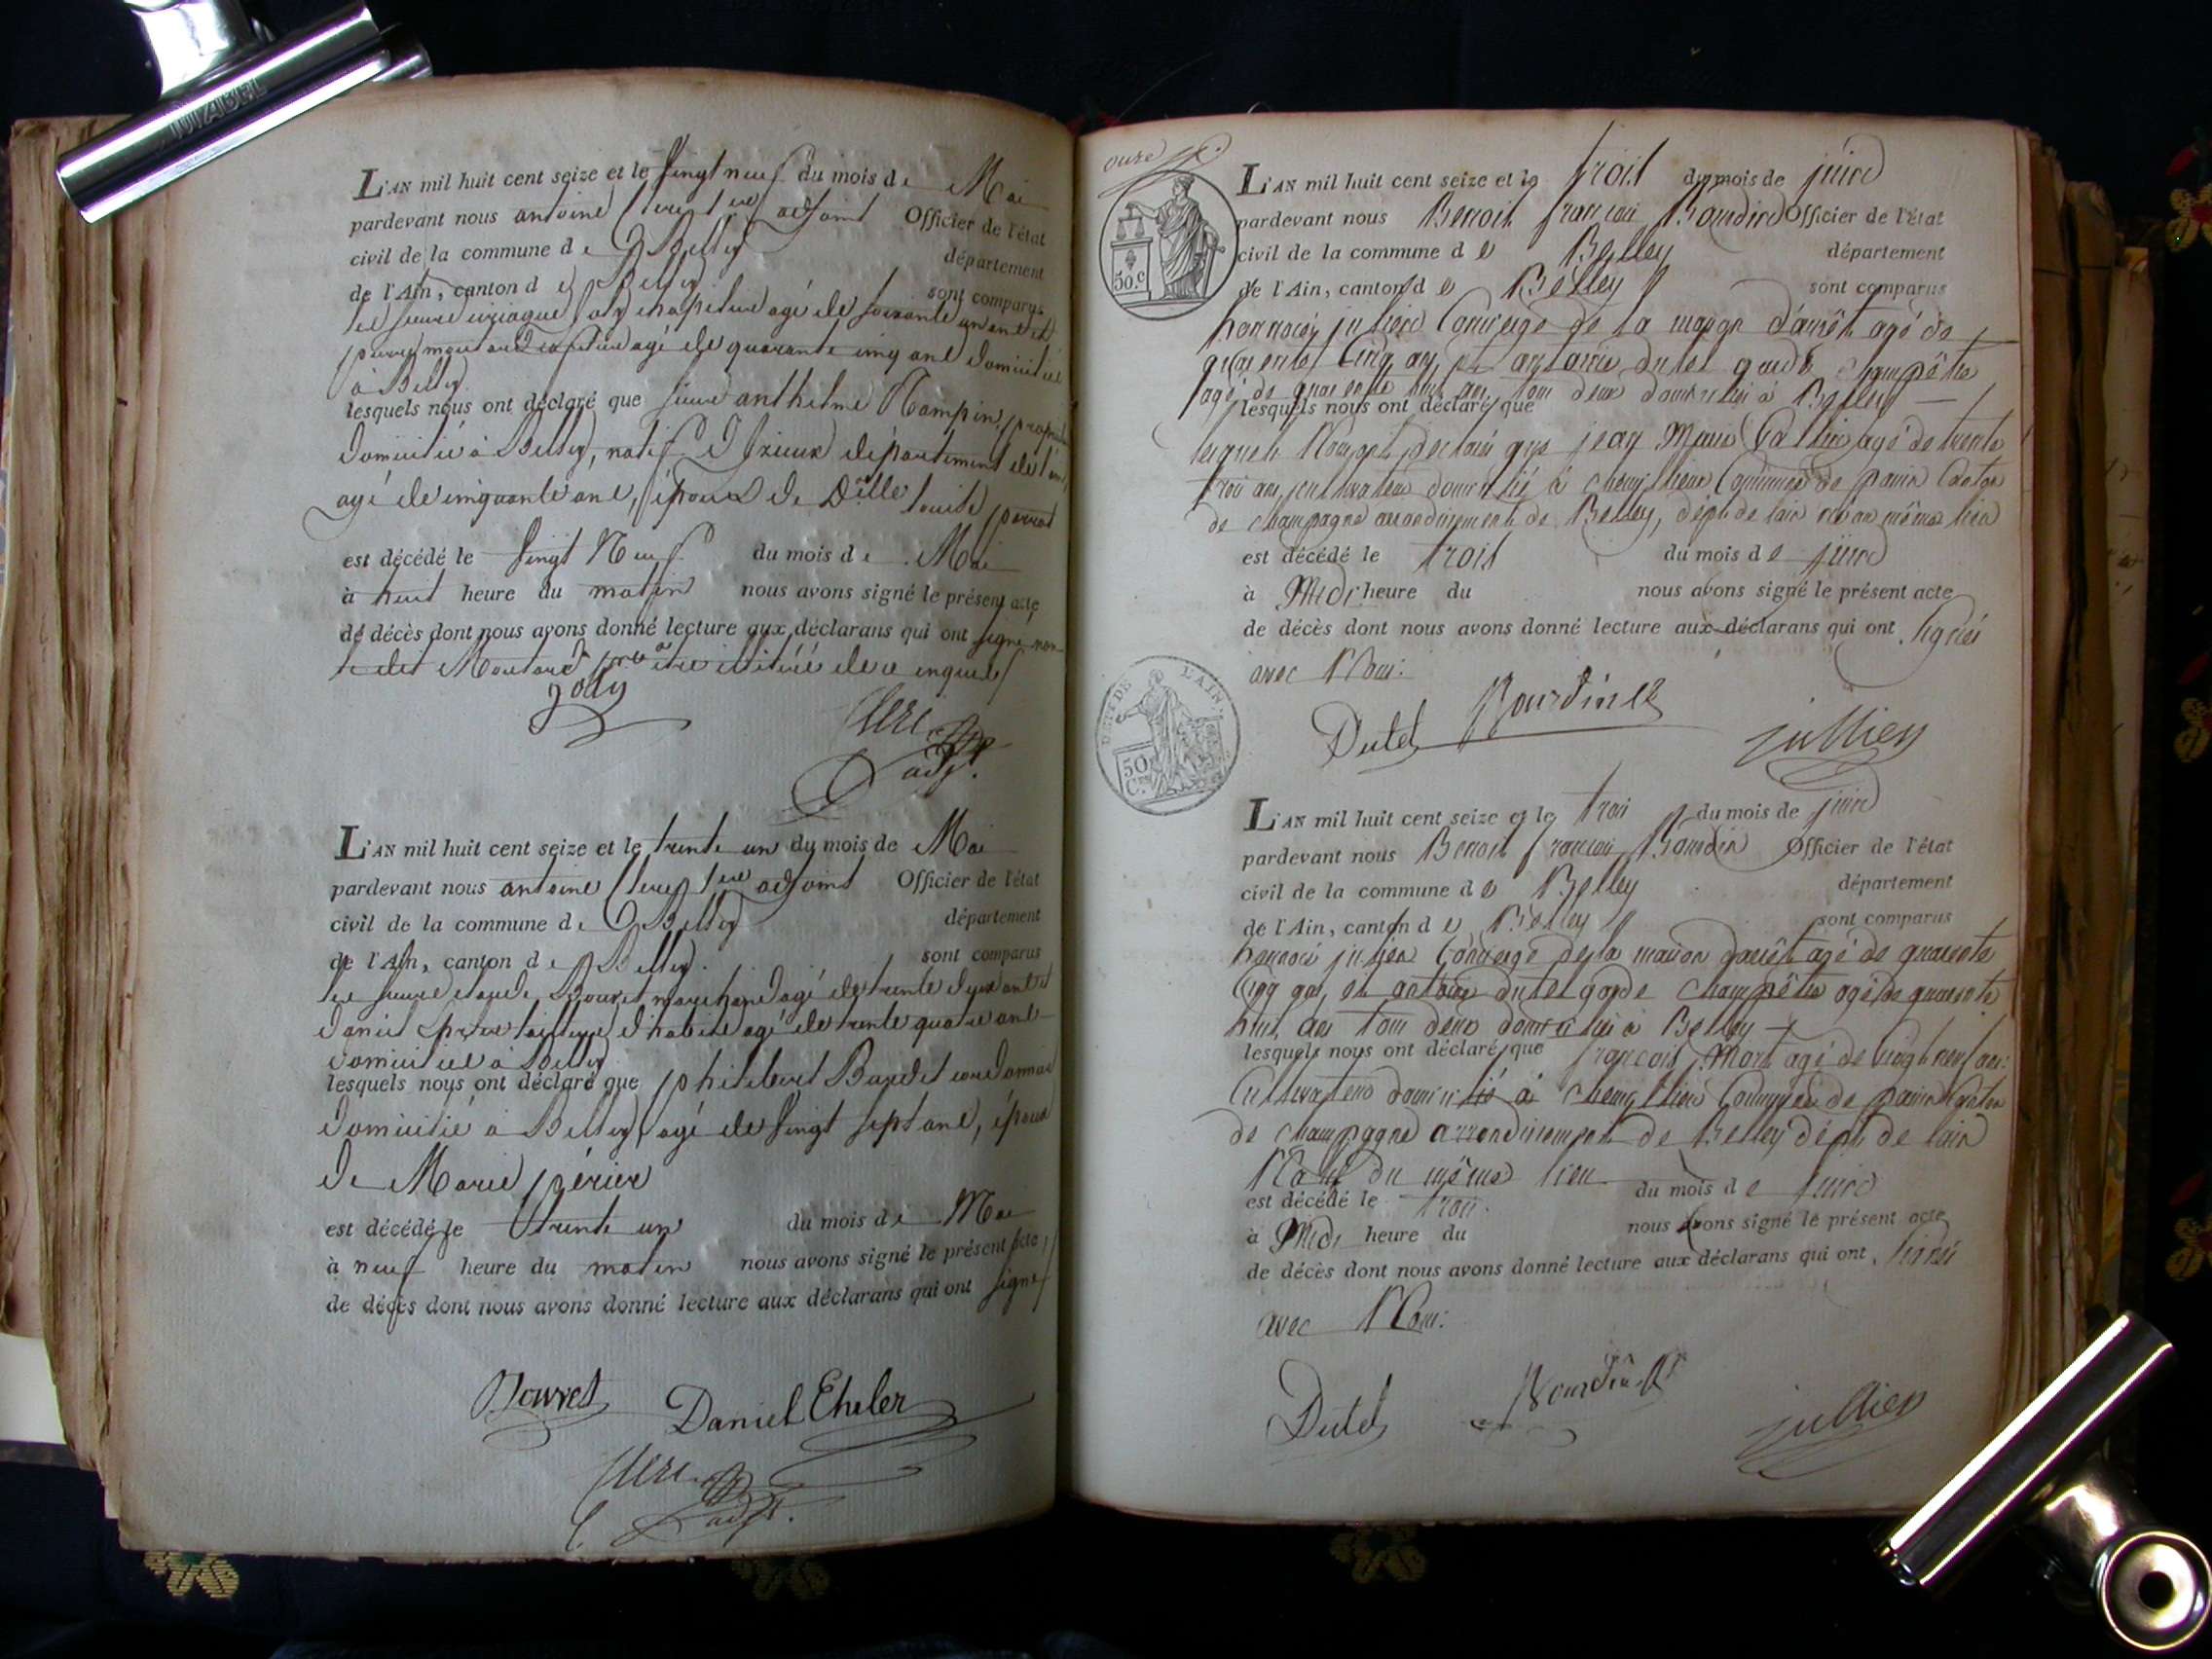 L'AN mil huit cent seize et le vingt neuf du mois de Mai
pardevant nous antoine Clerc 1er adjoint Officier de l'état
civil de la commune de Belley département
de l'Ain, canton de Belley sont comparus
agé de soixante un ans et
pierre moutard agé de quarante cinq ans domicilié
à Belley
lesquels nous ont déclaré que sieur anthelme Rampin
domicilié à Belley, natif département de l'ain
agé de cinquante ans, époux de Delle louise
est décédé le vingt Neuf du mois de Mai
à huit heure du matin nous avons signé le présent acte
de décès dont nous avons donné lecture aux déclarans qui ont signé non
ledit Moutard pour être illitéré de ce enquis
Clerc
adjt.
L'AN mil huit cent seize et le trente un du mois de Mai
pardevant nous antoine Clerc 1er adjoint Officier de l'état
civil de la commune de Belley département
de l'Ain, canton de Belley. sont comparus
les sieurs claude Bouvet marchand agé de trente deux ans et
daniel tailleur d'habits agé de trente quatre ans
domiciliés à Belley
lesquels nous ont déclaré que philibert Baudet cordonnier
domicilié à Belley, agé de vingt sept ans, époux
de Marie périer
est décédé le trente un du mois de Mai
à neuf heure du matin nous avons signé le présent acte
de décès dont nous avons donné lecture aux déclarans qui ont signé
Bouvet Daniel Eheler
Clerc
adjt.
onze
50.c
L'AN mil huit cent seize et le trois du mois de juin
pardevant nous Benoit françois Bourdin Officier de l'état
civil de la commune de Belley département
de l'Ain, canton de Belley sont comparus
honnoré julien Concierge de la maison d'arrêt agé de
quarente Cinq ans, et antoine dutel garde Champêtre
agé de quarente huit ans tous deux domiciliés à Belley
lesquels nous ont déclaré que
lesquels Nous ont déclarés que jean Marie agé de trente
trois ans, cultivateur domicilié à chemillieu Commune de parve Caton
de champagne arrondissement de Belley, dépt. de lain né au même lieu
est décédé le trois du mois de juin
à Midi heure du nous avons signé le présent acte
de décès dont nous avons donné lecture aux déclarans qui ont signés
avec Nous.
DEPT. DE L'AIN.
50 C.
Dutel Bourdin jullien
L'AN mil huit cent seize et le trois du mois de juin
pardevant nous Benoit françois Bourdin Officier de l'état
civil de la commune de Belley département
de l'Ain, canton de Belley sont comparus
honnoré julien Concierge de la maison d'arrêt agé de quarente
Cinq ans, et antoine dutel garde Champêtre agé de quarente
huit ans tous deux domiciliés à Belley
lesquels nous ont déclaré que françois Mort agé de vingt neuf ans.
Cultivateur domicilié à chemillieu Commune de parve Caton
de champagne arrondissement de Belley dépt. de lain
Natif du même lieu
est décédé le trois. du mois de juin
à Midi heure du nous avons signé le présent acte
de décès dont nous avons donné lecture aux déclarans qui ont signés
avec Nous.
Dutel Bourdin jullien